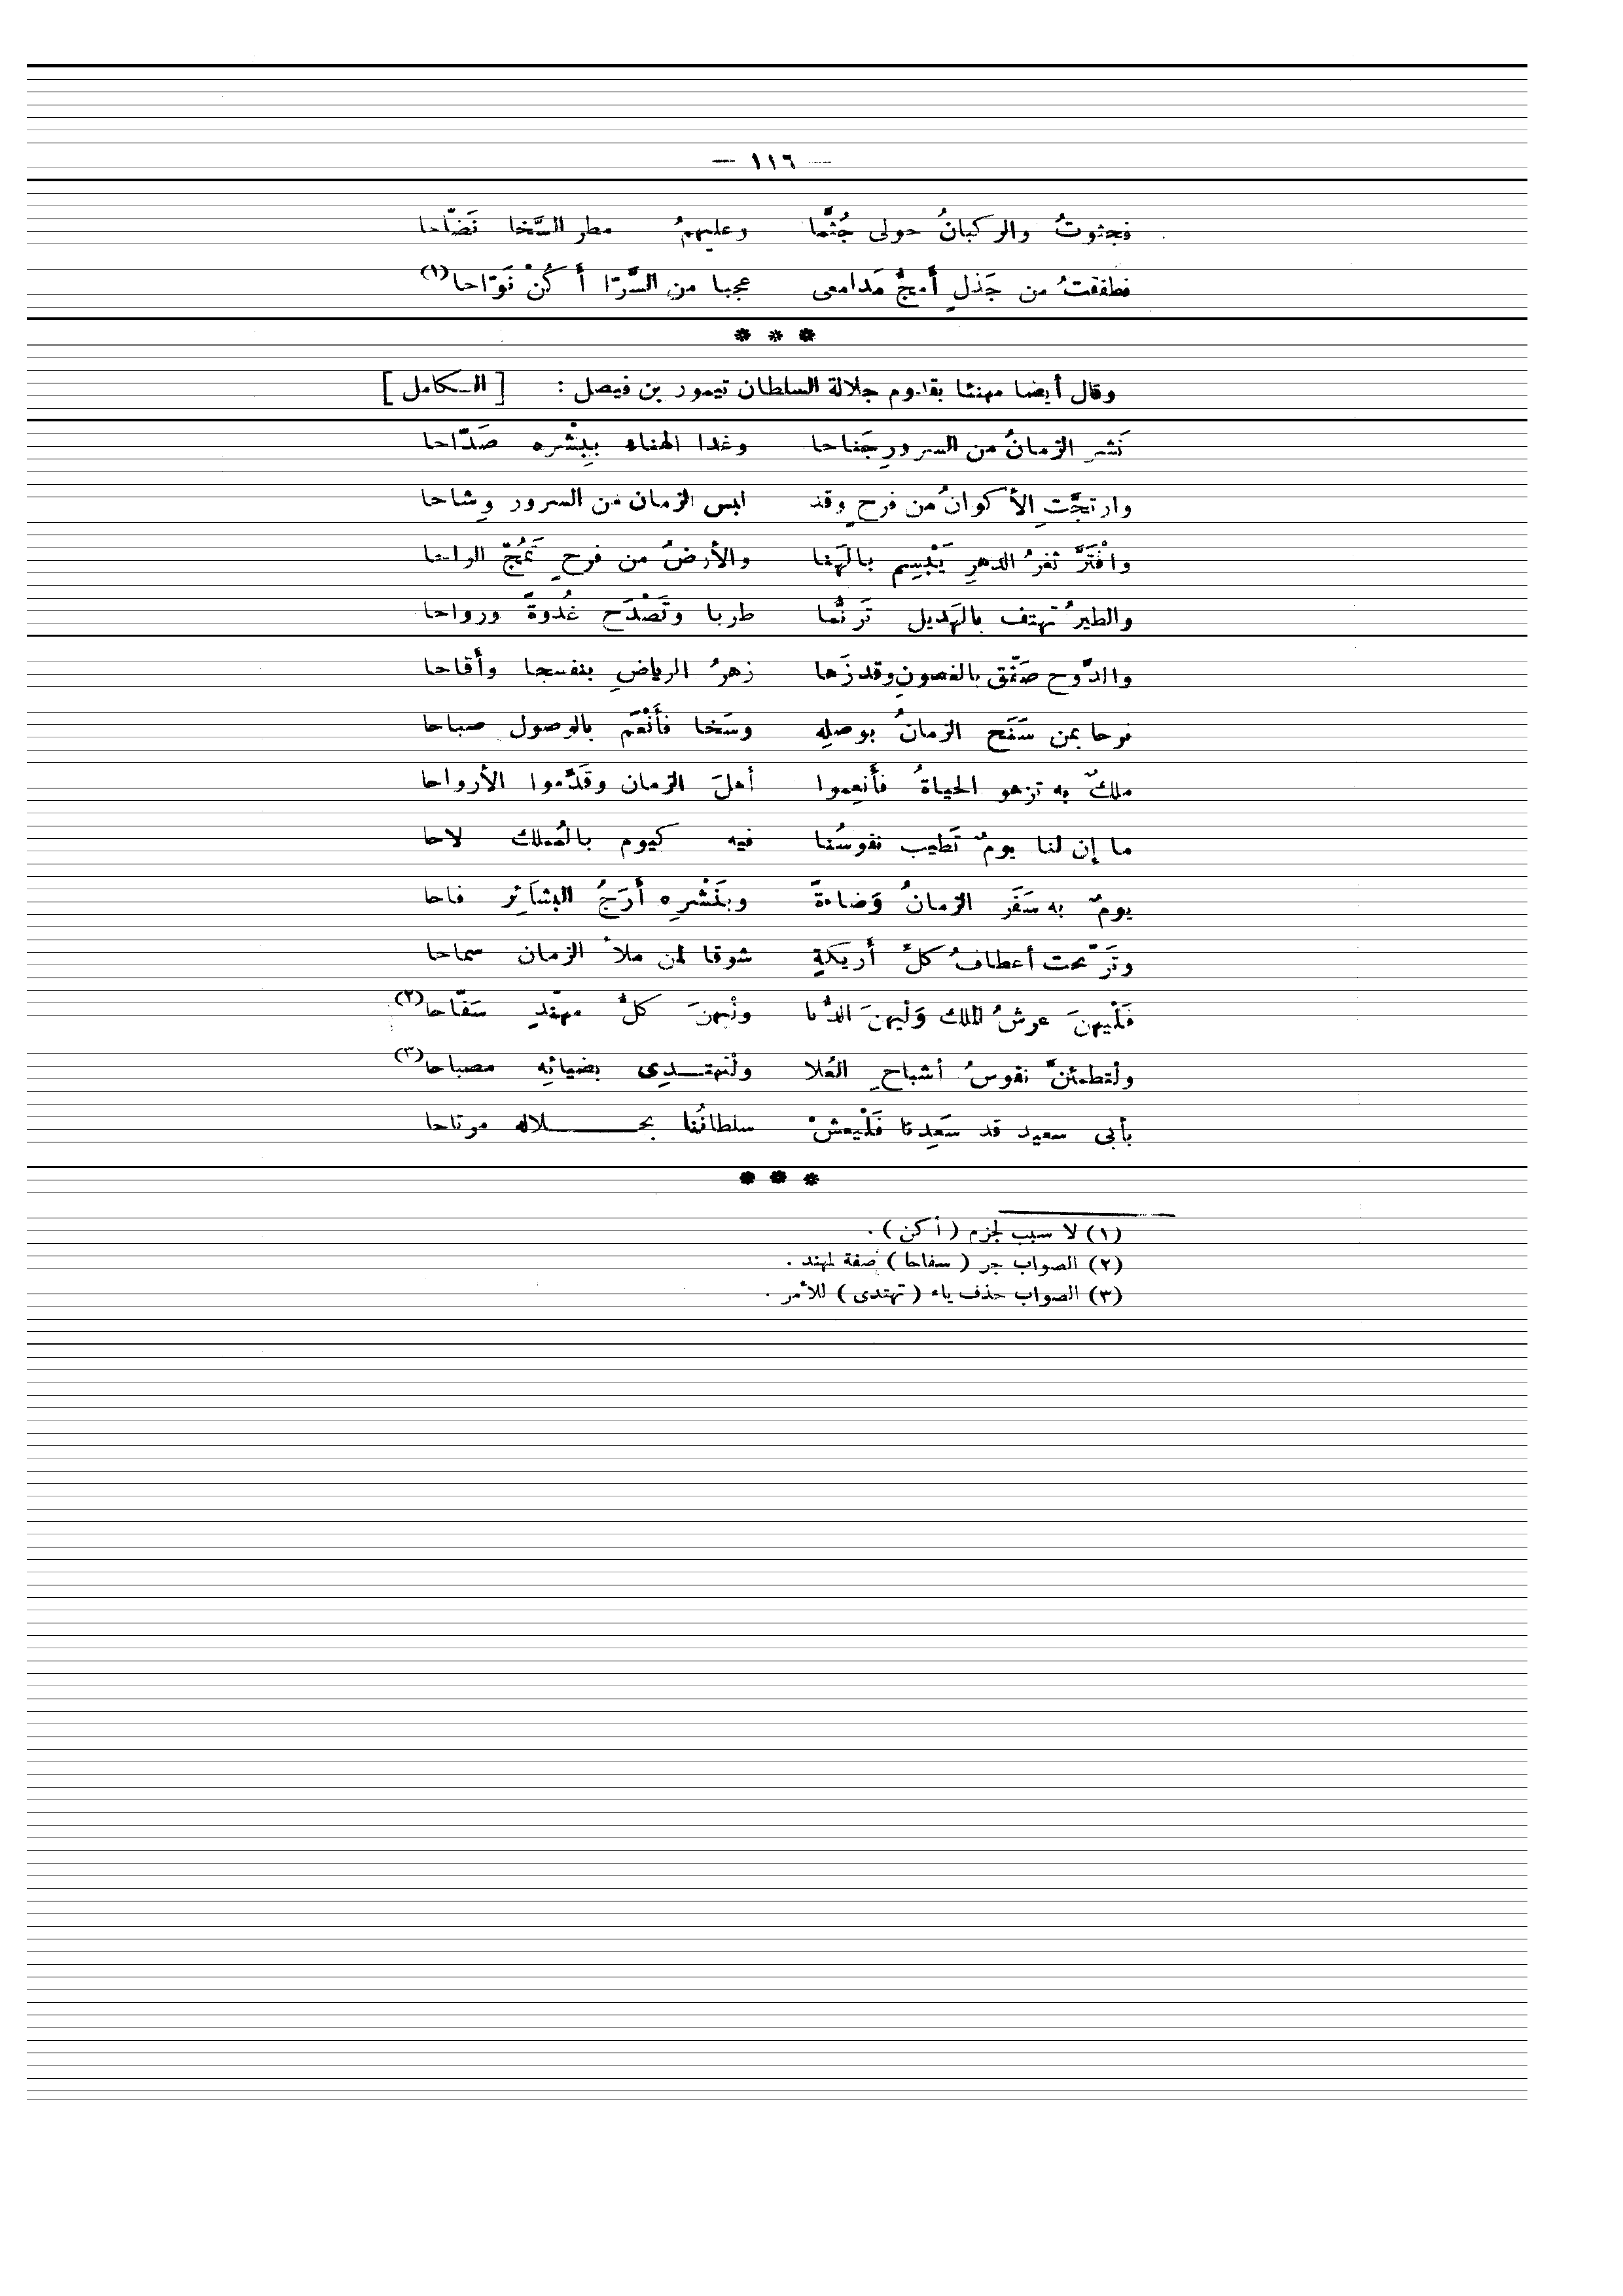 — ١١٦ —
فجثوتُ والركبانُ حولى جُثَّما وعليهمُ مطر السَّخا نَضّاحا
فطفقتُ من جَذلٍ أمجُّ مَدامعى عجبا من السَّرّا أكُنْ نَوّاحا (١)
* * *
وقال أيضا مهنئا بقدوم جلالة السلطان تيمور بن فيصل : [ الـكامل ]
نَشر الزمانُ من السرورِ جَناحا وغدا الهناء ببِشْره صَدّاحا
وارتجَّتِ الأكوانُ من فرحٍ وقد لبس الزمان من السرور وِشاحا
وافْتَرَّ ثغرُ الدهرِ يَبْسِم بالهَنا والأرضُ من فرحٍ تَمُجّ الراحا
والطيرُ تهتف بالهَديل تَرنُّما طربا وتَصْدَح غُدوةً ورواحا
والدَّوح صَفّق بالغصونِ وقد زَها زهرُ الرياضِ بنفسجا وأقاحا
فرحا بمن سَمَح الزمانُ بوصلِه وسَخا فأَنْعَم بالوصول صباحا
ملكٌ به تزهو الحياةُ فأَنعِموا أهلَ الزمان وقَدَّموا الأرواحا
ما إن لنا يومٌ تَطيب نفوسُنا فيه كيوم بالمُملك لاحا
يومٌ به سَفَر الزمانُ وَضاءةً وبنَشْرِه أَرَجُ البشائِر فاحا
وتَرنّحت أعطافُ كلِّ أريكةٍ شوقا لمن ملأ الزمان سماحا
فَلْيهنَ عرشُ الملك وَلْيهنَ الدُّنا ولْيهنَ كلُّ مهنّدٍ سَفّاحا (٢)
ولْتطمئنَّ نفوسُ أشباحِ العُلا ولْتهتـــدِى بضيائِه مصباحا (٣)
بأبى سعيد قد سَعِدنا فَلْيعشْ سلطانُنا بجـــــلاله مرتاحا
* * *
(١) لا سبب لجزم ( أكن ) .
(٢) الصواب جر ( سفاحا ) صفة لمهند .
(٣) الصواب حذف ياء ( تهتدى ) للأمر .